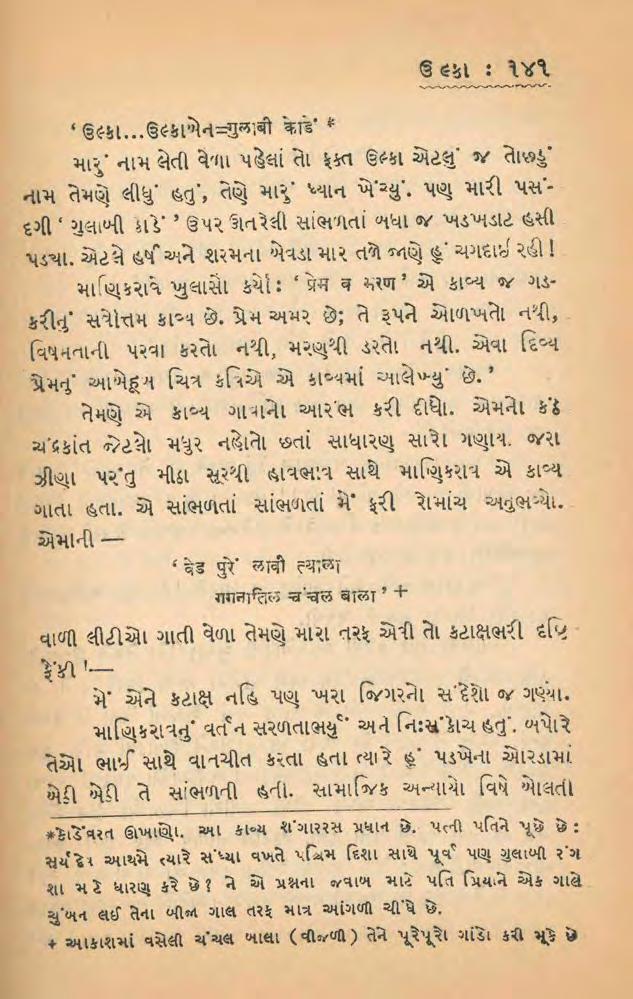 ઉલ્કા : ૧૪૧
‘ ઉલ્કા...ઉલ્કાબેન=गुलाबी कोडें ’ *
મારું નામ લેતી વેળા પહેલાં તો ફક્ત ઉલ્કા એટલું જ તોછડું
નામ તેમણે લીધું હતું, તેણે મારું ધ્યાન ખેંચ્યું. પણ મારી પસં-
દગી ‘ ગુલાબી કોડેં ’ ઉપર ઊતરેલી સાંભળતાં બધા જ ખડખડાટ હસી
પડ્યા. એટલે હર્ષ અને શરમના બેવડા માર તળે જાણે હું ચગદાઈ રહી !
માણિકરાવે ખુલાસો કર્યો : ‘ પ્રેમ વ મરણ ’ એ કાવ્ય જ ગડ-
કરીનું સર્વોત્તમ કાવ્ય છે. પ્રેમ અમર છે; તે રૂપને ઓળખતો નથી,
વિષમતાની પરવા કરતો નથી, મરણથી ડરતો નથી. એવા દિવ્ય
પ્રેમનું આબેહૂબ ચિત્ર કવિએ એ કાવ્યમાં આલેખ્યું છે. ’
તેમણે એ કાવ્ય ગાવાનો આરંભ કરી દીધો. એમનો કંઠ
ચંદ્રકાંત જેટલો મધુર નહોતો છતાં સાધારણ સારો ગણાય. જરા
ઝીણા પરંતુ મીઠા સૂરથી હાવભાવ સાથે માણિકરાવ એ કાવ્ય
ગાતા હતા. એ સાંભળતાં સાંભળતાં મેં ફરી રોમાંચ અનુભવ્યો.
એમાની —
‘ वेड पुरें लावी त्याला
गगनातिल चंचल बाला ’ +
વાળી લીટીઓ ગાતી વેળા તેમણે મારા તરફ એવી તો કટાક્ષભરી દૃષ્ટિ
ફેંકી !—
મેં એને કટાક્ષ નહિ પણ ખરા જિગરનો સંદેશો જ ગણ્યા.
માણિકરાવનું વર્તન સરળતાભર્યું અને નિઃસંકોચ હતું. બપોરે
તેઓ ભાઈ સાથે વાતચીત કરતા હતા ત્યારે હું પડખેના ઓરડામાં
બેઠી બેઠી તે સાંભળતી હતી. સામાજિક અન્યાયો વિષે બોલતી
*કોડેંવરત ઊખાણો. આ કાવ્ય શંગારરસ પ્રધાન છે. પત્ની પતિને પૂછે છે :
સૂર્યદેવ આથમે ત્યારે સંધ્યા વખતે પશ્ચિમ દિશા સાથે પૂર્વ પણ ગુલાબી રંગ
શા માટે ધારણ કરે છે ? ને એ પ્રશ્નના જવાબ માટે પતિ પ્રિયાને એક ગાલે
ચુંબન લઈ તેના બીજા ગાલ તરફ માત્ર આંગળી ચીંધે છે.
+ આકાશમાં વસેલી ચંચલ બાલા ( વીજળી ) તેને પૂરેપૂરો ગાંડો કરી મૂકે છે